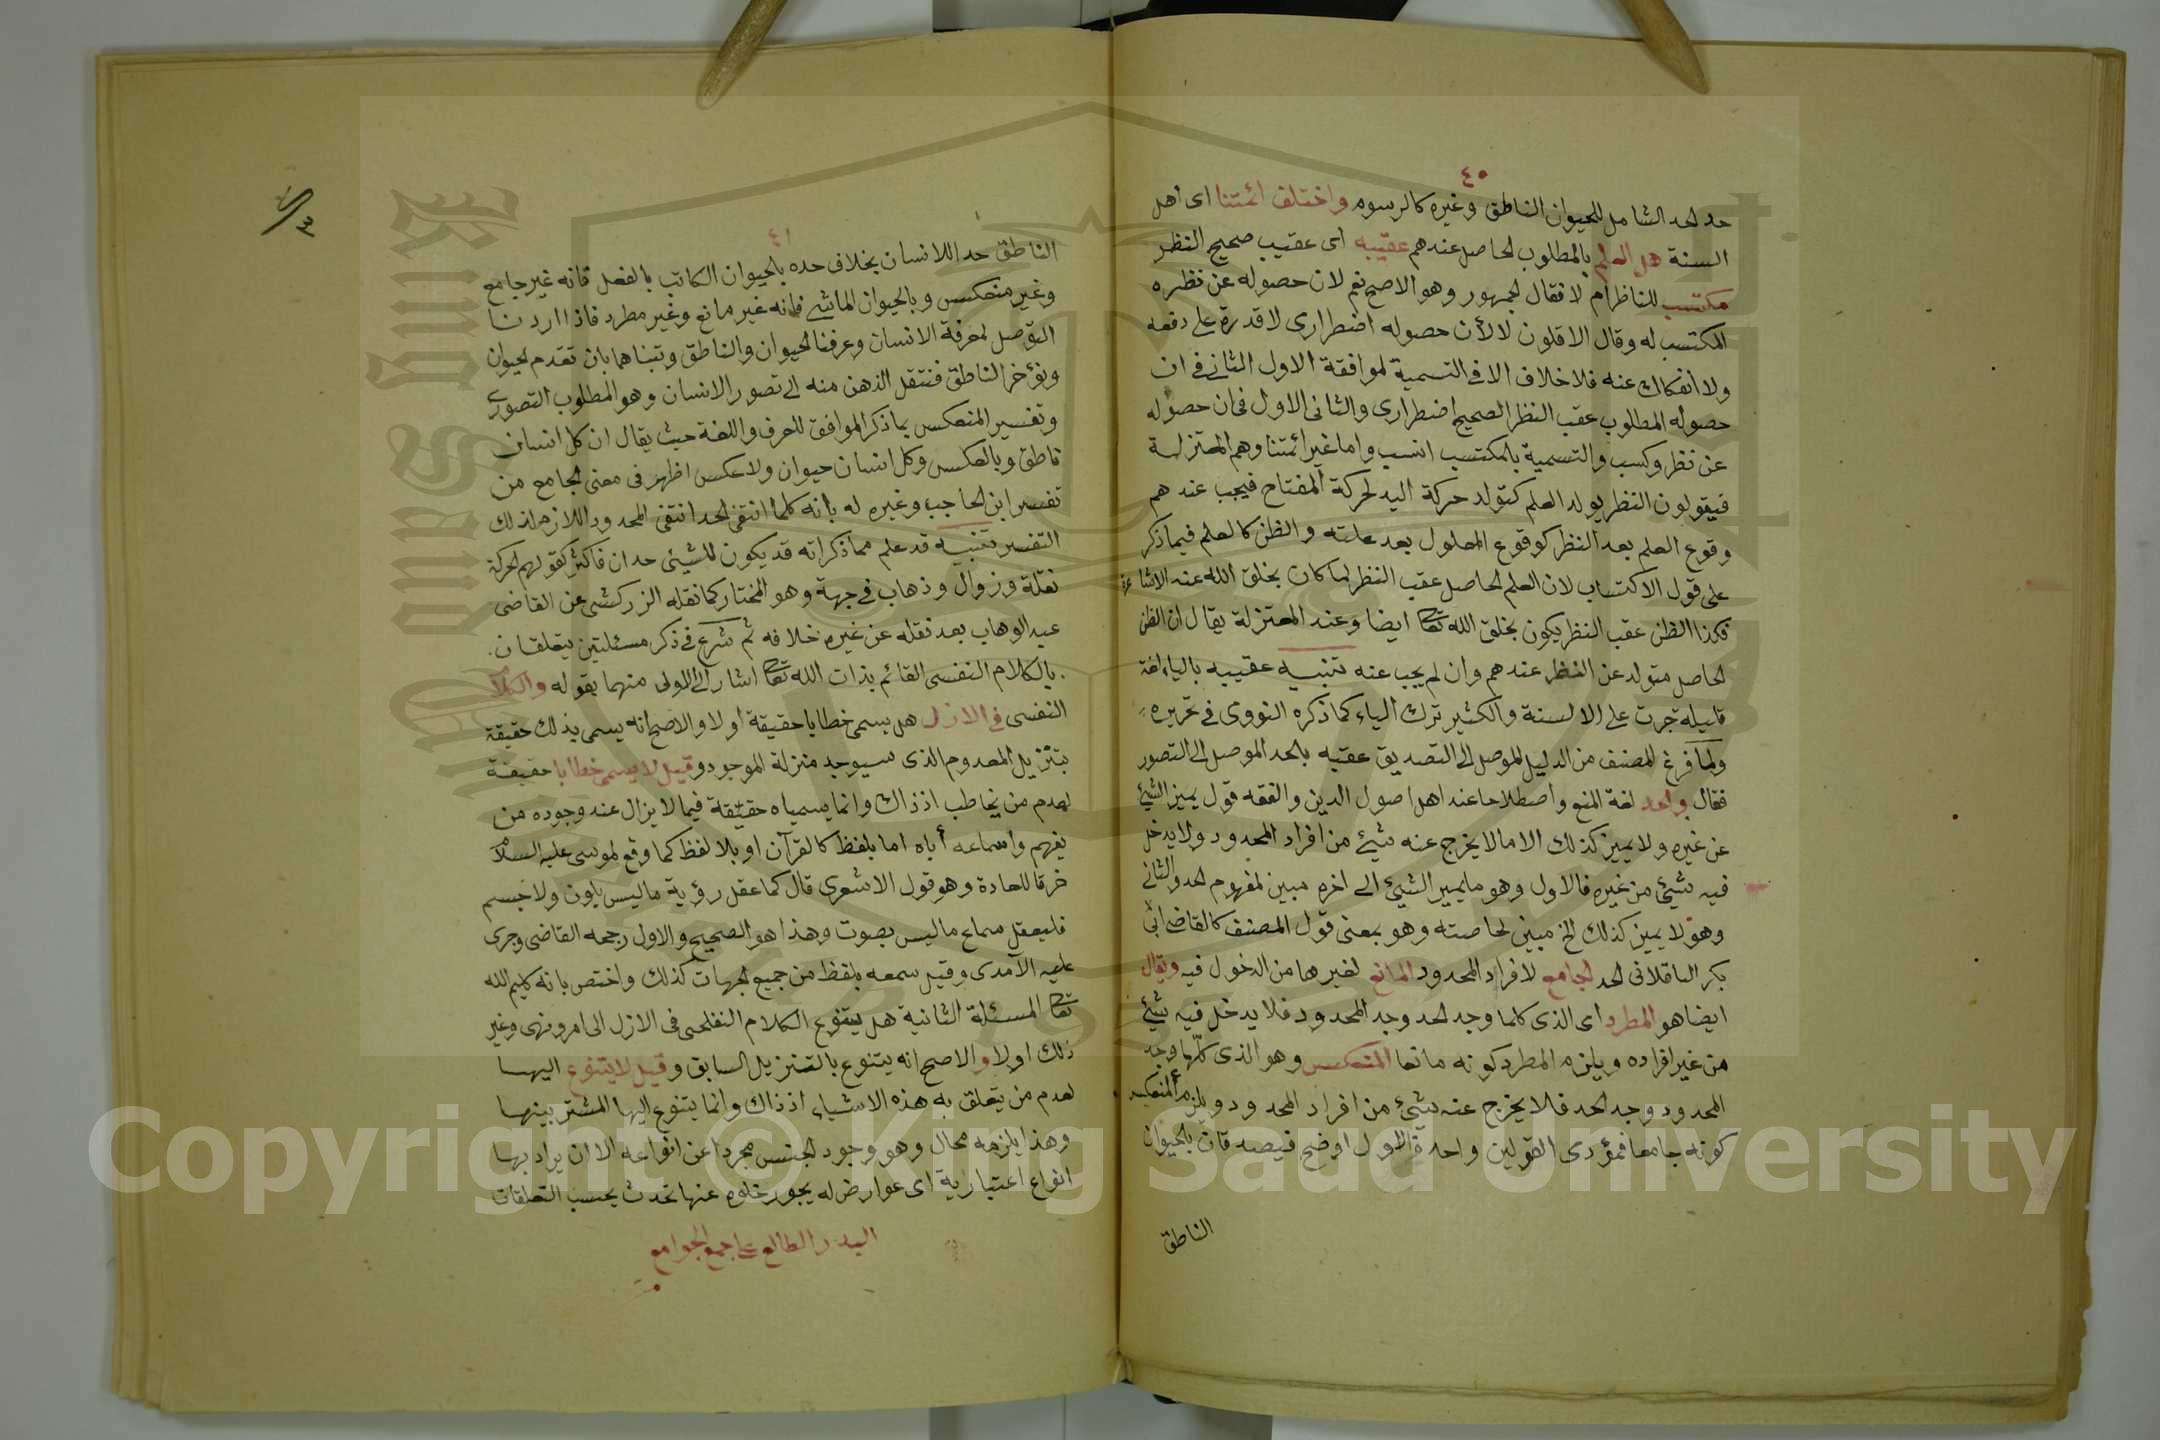 ٤٠
حد لحد الشامل للحيوان الناطق وغيره كالرسوم واختلف ائمتنا اى اهل
السنة هل العلم بالمطلوب لحاصل عندهم عقيبه اى عقيب صحيح النظر
مكتسب للناظر أم لا فقال لجمهور وهو الاصح نعم لان حصوله عن نظره
المكتسب له وقال الاقلون لا لأن حصوله اضطرارى لا قدرة على دفعه
ولا انفكاك عنه فلا خلاف الا فى التسمية لموافقة الاول الثانى فى ان
حصوله المطلوب عقب النظر الصحيح اضطرارى والثانى الاول فى ان حصوله
عن نظر وكسب والتسمية بالمكتسب انسب واما غير ائمتنا وهم المعتزلة
فيقولون النظر يولد العلم كتولد حركة اليد لحركة المفتاح فيجب عندهم
وقوع العلم بعد النظر كوقوع المعلول بعد علته والظن كالعلم فيما ذكر
على قول الاكتساب لان العلم لحاصل عقب النظر لما كان بخلق الله عند الاشاعرة
فكذا الظن عقب النظر يكون بخلق الله تعالى ايضا وعند المعتزلة يقال ان الظن
لحاصل متولد عن النظر عندهم وان لم يجب عنه تنبيه عقيبه بالياء لغة
قليلة جرت على الالسنة والكثير ترك الياء كما ذكره النووى فى تحريره
ولما فرغ المصنف من الدليل الموصل الى التصديق عقبه بالحد الموصل الى التصور
فقال ولحد لغة المنع واصطلاحا عند اهل اصول الدين والفقه قول يميز الشئ
عن غيره ولا يميز كذلك الا ما لا يخرج عنه شئ من افراد المحدود ولا يدخل
فيه شئ من غيره فالاول وهو ما يميز الشئ الى اخره مبين لمفهوم لحد والثانى
وهو لا يميز كذلك الخ مبين لخاصته وهو بمعنى قول المصنف كالقاضى ابى
بكر الباقلانى لحد لجامع لافراد المحدود المانع لغيرها من الدخول فيه ويقال
ايضا هو المطرد اى الذى كلما وجد لحد وجد المحدود فلا يدخل فيه شئ
من غير افراده ويلزم المطرد كونه مانعا المنعكس وهو الذى كلما وجد
المحدود وجد لحد فلا يخرج عنه شئ من افراد المحدود ويلزم المنعكس
كونه جامعا فمؤدى القولين واحد والاول اوضح فيصدقان بالحيوان
الناطق
٤١
الناطق حد اللانسان بخلاف حده بالحيوان الكاتب بالفعل فانه غير جامع
وغير منعكس وبالحيوان الماشى فانه غير مانع وغير مطرد فاذا اردنا
التوصل لمعرفة الانسان وعرفنا لحيوان والناطق وتبناهما بان تقدم لحيوان
ونؤخر الناطق فنتقل الذهن منه الى تصور الانسان وهو المطلوب التصورى
وتفسير المنعكس بما ذكر الموافق للعرف واللغة حيث يقال ان كل انسان
ناطق وبالعكس وكل انسان حيوان ولا عكس اظهر فى معنى لجامع من
تفسير ابن لحاجب وغيره له بانه كلما انتفى لحد انتفى المحدود اللازم لذلك
التفسير تنبيه قد علم مما ذكر انه قد يكون للشيئى حدان فاكثر كقولهم لحركة
نقلة وزوال وذهاب فى جهة وهو المختار كما نقله الزركشى عن القاضى
عبد الوهاب بعد نقله عن غيره خلافه ثم شرع فى ذكر مسئلتين يتعلقان
بالكلام النفسى القائم بذات الله تعالى اشار الى الاولى منهما بقوله والكلام
النفسى فى الازل هل يسمى خطابا حقيقة اولا والاصح انه يسمى بذلك حقيقة
بتنزيل المعدوم الذى سيوجد منزلة الموجود وقيل لا يسمى خطابا حقيقة
لعدم من يخاطب اذ ذاك وانما يسمياه حقيقة فيما لا يزال عند وجوده من
يفهم واسماعه أياه اما بلفظ كالقرآن او بلا لفظ كما وقع لموسى عليه السلام
خرقا للعادة وهو قول الاشعرى قال كما عقل رؤية ما ليس بلون ولا جسم
فليعقل سماع ما ليس بصوت وهذا هو الصحيح والاول رجحه القاضى وجرى
عليه الآمدى وقيل سمعه بلفظ من جميع لجهات كذلك واختص بانه كليم الله
تعالى المسئلة الثانية هل يتنوع الكلام النفلحسى فى الازل الى امر ونهى وغير
ذلك اولا والاصح انه يتنوع بالتنزيل السابق وقيل لا يتنوع اليها
لعدم من يتعلق به هذه الاشياء اذ ذاك وانما يتنوع اليها المشتر بينها
وهذا يلزمه محال وهو وجود لجنس مجردا عن انواعه الا ان يراد بها
انواع اعتبارية اى عوارض له يجوز خلوه عنها تحدث بحسب التعلقات
البدر الطالع على جمع الجوامع
Copyright © King Saud University
King Saud University